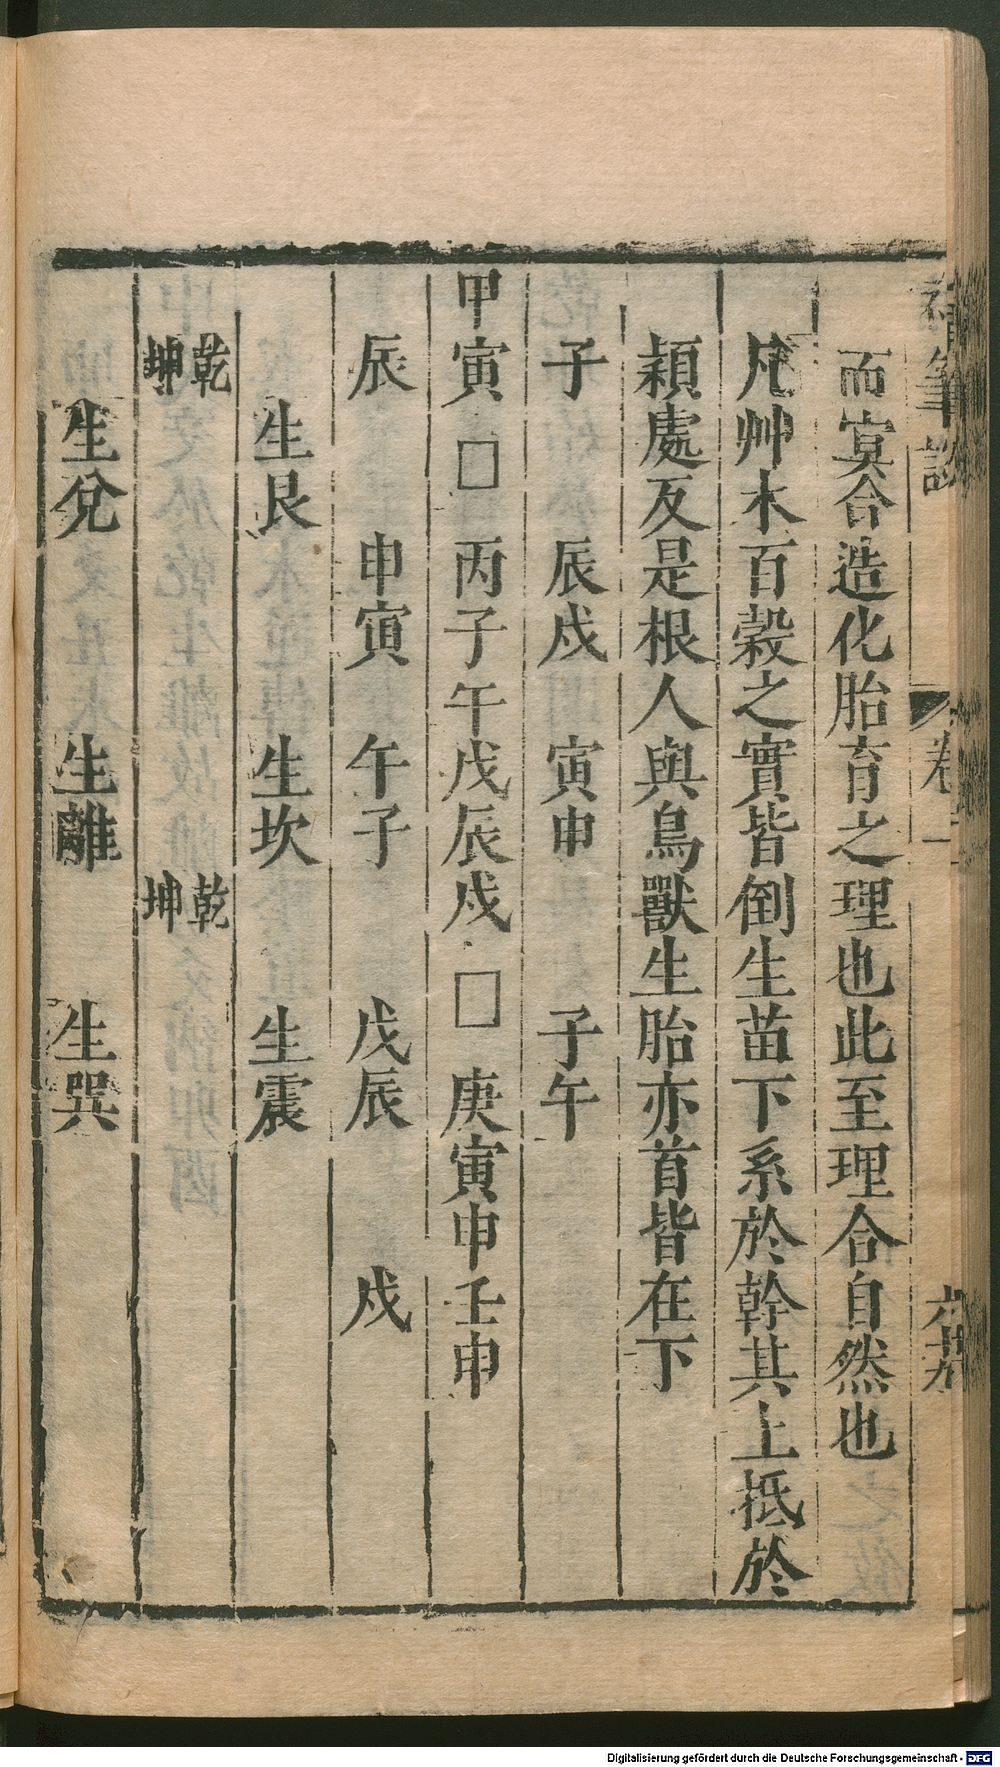 筆談 卷二
而寞合造化胎育之理也此至理合自然也
凡艸木百穀之實皆倒生苗下系於幹其上抵於
穎處反是根人與鳥獸生胎亦首皆在下
子 辰戌 寅申 子午
甲寅□丙子午戊辰戌□庚寅申壬申
辰 申寅 午子 戊辰 戌
生艮 生坎 生震
乾坤 乾坤
生兌 生離 生巽
Digitalisierung gefördert durch die Deutsche Forschungsgemeinschaft - DFG